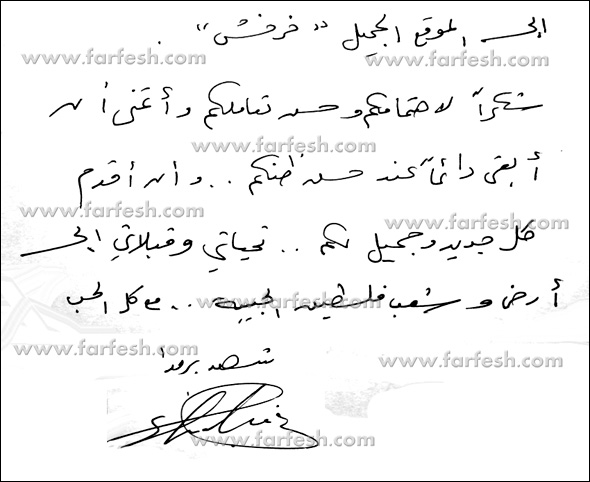 إلى الموقع الجميل "فرفش".
www.farfesh.com www.farfesh.com
شكراً لاهتمامكم وحسن تعاملكم وأتمنى أن
www.farfesh.com
أبقى دائماً عند حسن ظنكم .. وأن أقدم
www.farfesh.com www.farfesh.com
كل جديد وجميل لكم .. تحياتي وقبلاتي إلى
أرض وشعب فلسطين الحبيبة .. مع كل الحب
www.farfesh.com
www.farfesh.com www.farfesh.com
شهد برمدا
www.farfesh.com